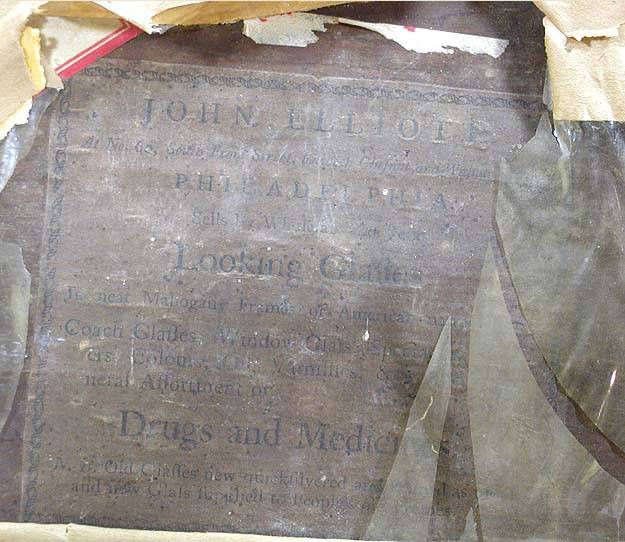 JOHN ELLIOTT
At No. 62, South Front Street, between Chesnut and Walnut
PHILADELPHIA
Sells by Wholesale
Looking Glasses
In neat Mahogany Frames of American
Coach Glasses, Window Glass,
ers Colours, Oil, Varnishes,
neral Assortment of
Drugs and Medicines
N. B. Old Glasses new quicksilvered and as
and new Glass supplied to People's own Frames